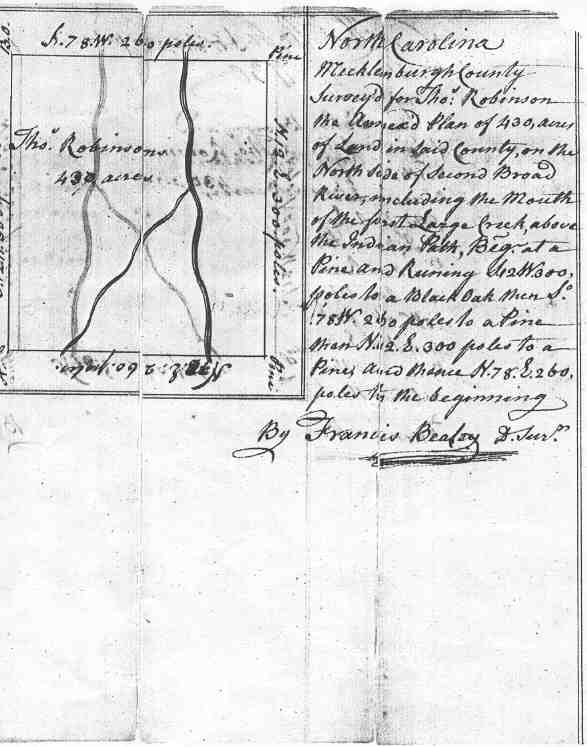 S. 78. W. 260 poles.
Pine
Thos. Robinsons
430 acres
N. 12. E. 300 poles.
Pine
North Carolina
Mecklenburgh County
Survey'd for Thos. Robinson
the Annexd Plan of 430, acres
of Land in said County, on the
North side of Second Broad
River, including the Mouth
of the first Large Creek, above
the Indian Path, Beg. at a
Pine and Runing 12 W 300,
poles to a Black Oak then So.
78W. 260 poles to a Pine
then N. 12. E. 300 poles to a
Pine, and thence N. 78. E. 260,
poles to the beginning
By Francis Beatey D. Surr.